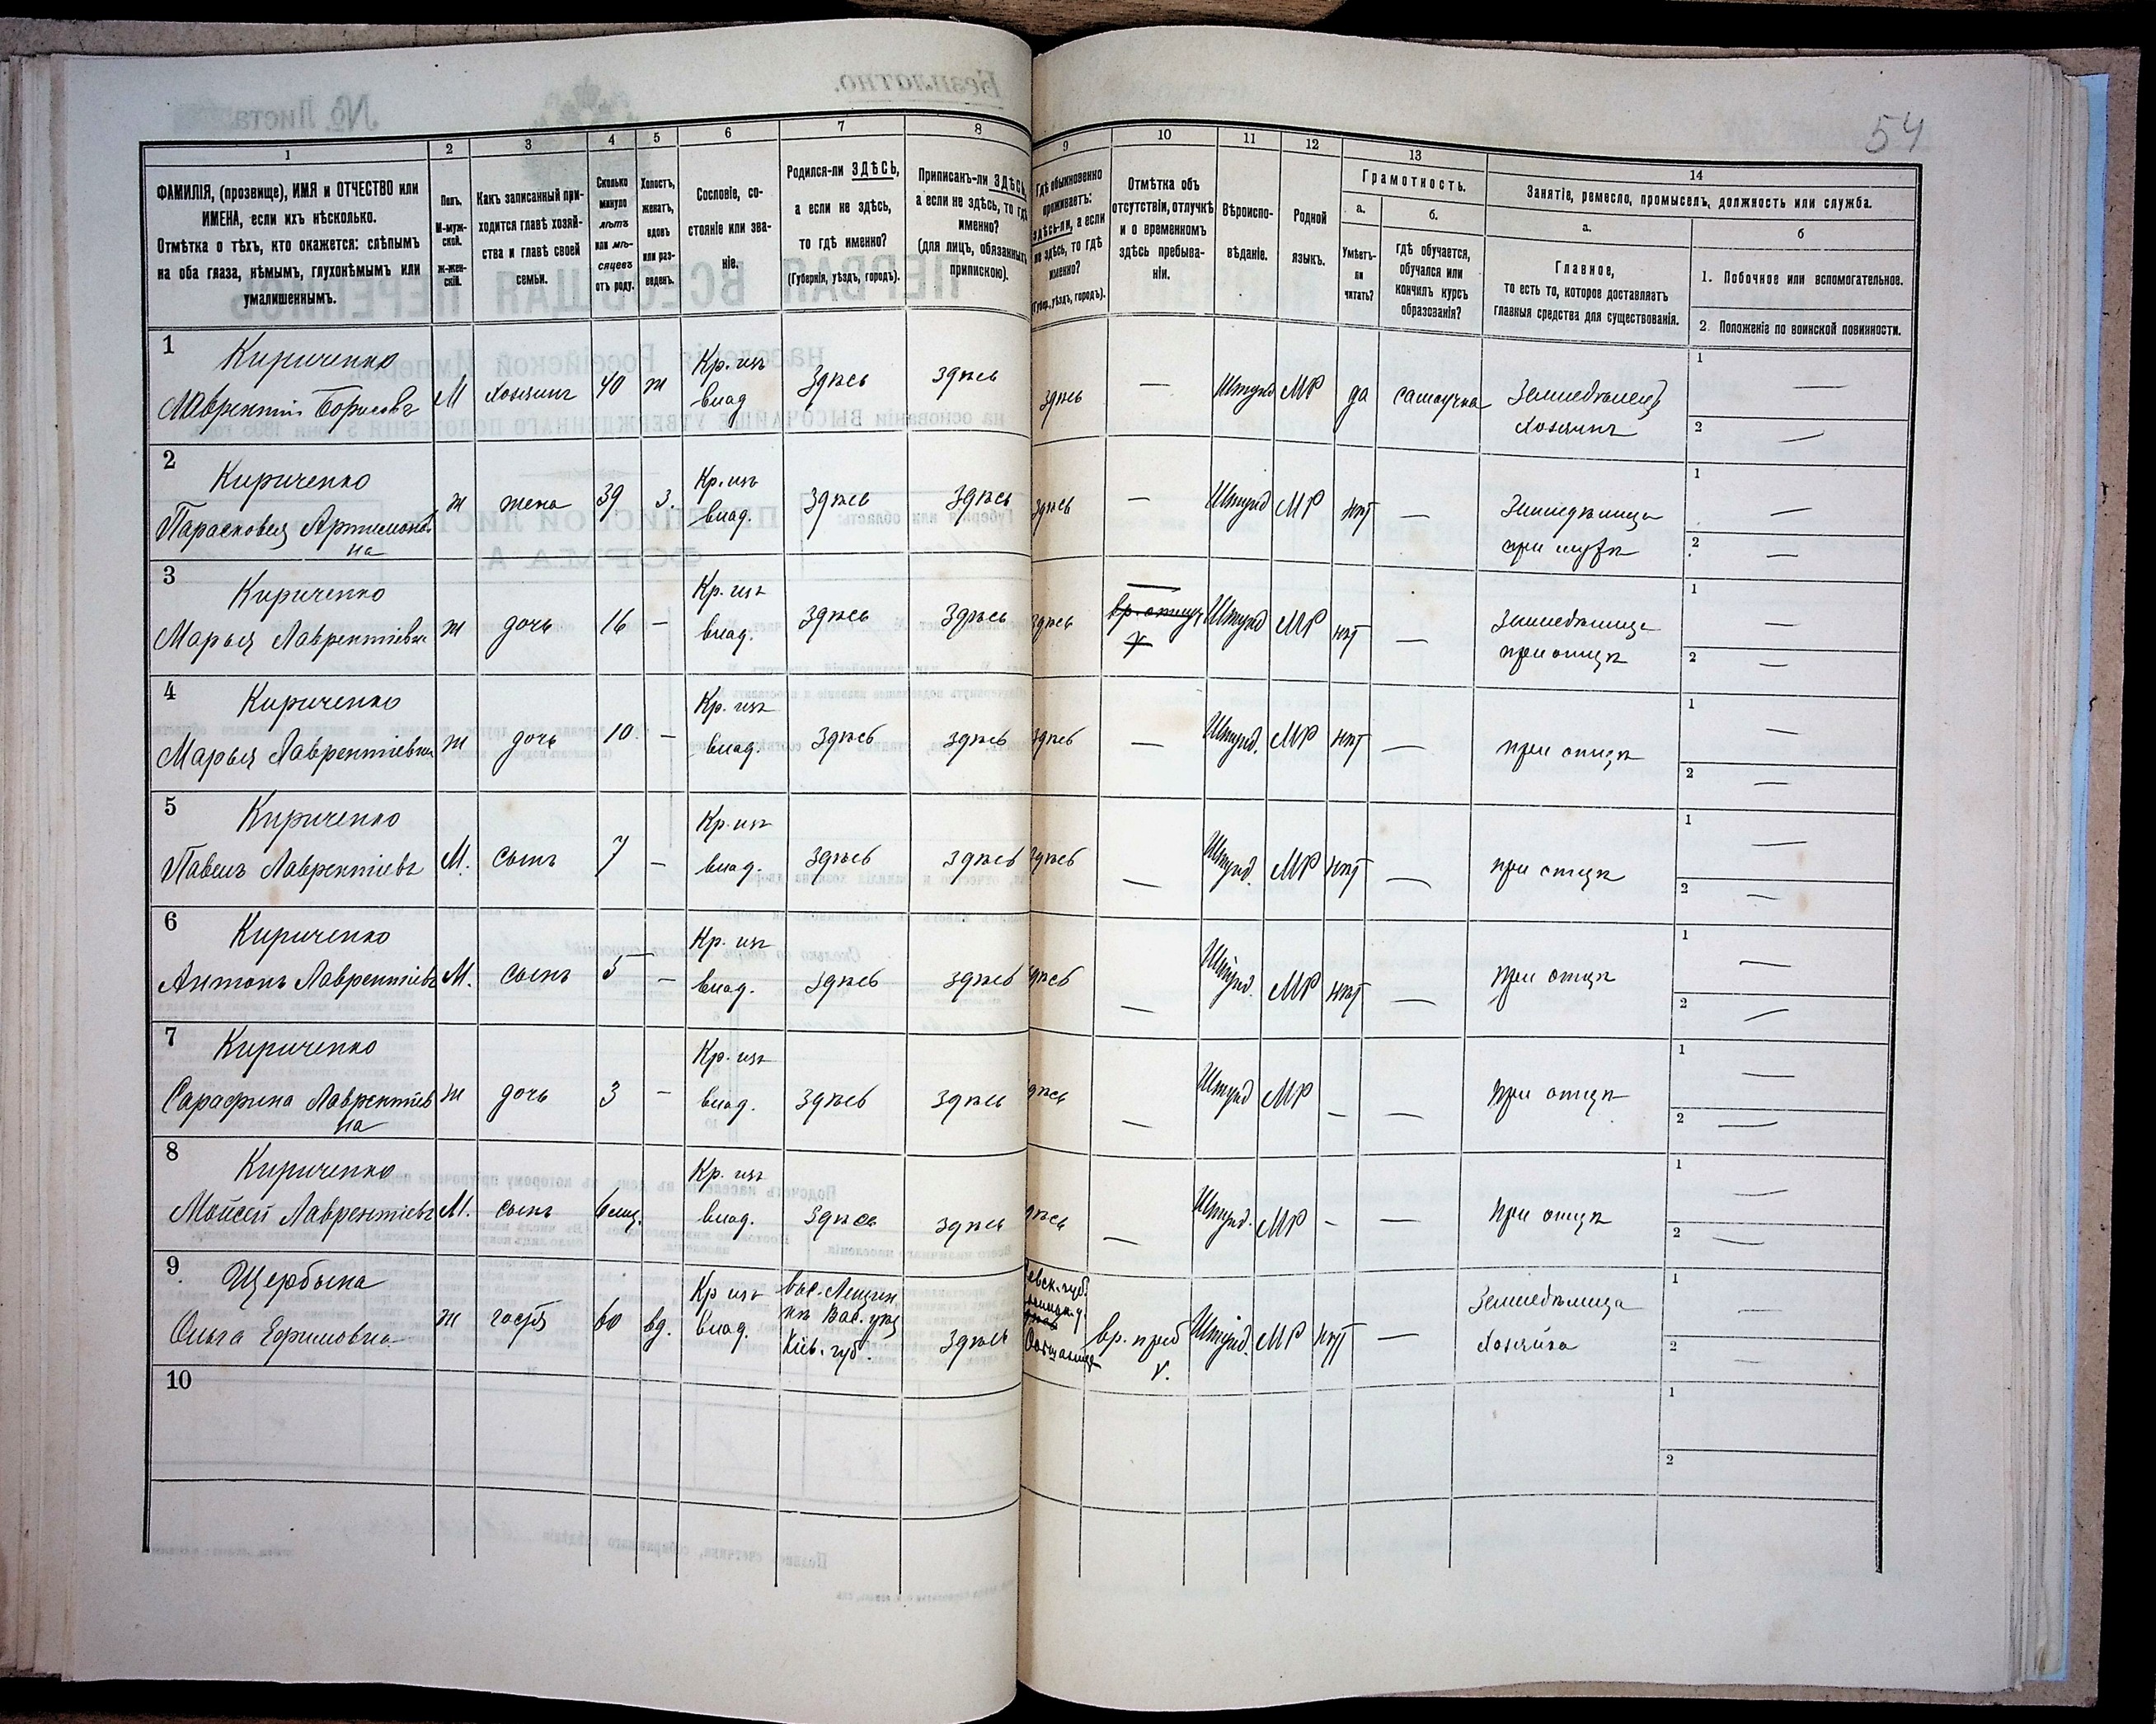 54
1 2 3 4 5 6 7 8 9 10 11 12 13 14
ФАМИЛІЯ, (прозвище), ИМЯ и ОТЧЕСТВО или
ИМЕНА, если ихъ нѣсколько.
Отмѣтка о тѣхъ, кто окажется: слѣпымъ
на оба глаза, нѣмымъ, глухонѣмымъ или
умалишеннымъ.
Полъ.
М-муж-
ской.
Ж-жен-
скій.
Какъ записанный при-
ходится главѣ хозяй-
ства и главѣ своей
семьи.
Сколько
минуло
лѣтъ
или мѣ-
сяцевъ
отъ роду.
Холостъ,
женатъ,
вдовъ
или раз-
веденъ.
Сословіе, со-
стояніе или зва-
ніе.
Родился-ли ЗДѢСЬ,
а если не здѣсь,
то гдѣ именно?
(Губернія, уѣздъ, городъ).
Приписанъ-ли ЗДѢСЬ,
а если не здѣсь, то гдѣ
именно?
(для лицъ, обязанныхъ
припискою).
Гдѣ обыкновенно
проживаетъ:
здѣсь-ли, а если
не здѣсь, то гдѣ
именно?
(Губер., уѣздъ, городъ).
Отмѣтка объ
отсутствіи, отлучкѣ
и о временномъ
здѣсь пребыва-
ніи.
Вѣроиспо-
вѣданіе.
Родной
языкъ.
Грамотность.
а.
Умѣетъ-
ли
читать?
б.
гдѣ обучается,
обучался или
кончилъ курсъ
образованія?
Занятіе, ремесло, промыселъ, должность или служба.
а.
Главное,
то есть то, которое доставляетъ
главныя средства для существованія.
б
1. Побочное или вспомогательное.
2. Положеніе по воинской повинности.
1 Кириченко
Лаврентій Борисовъ М Хозяинъ 40 ж Кр. изъ влад здѣсь здѣсь здѣсь — Штунд МР да самоучка Земледѣлецъ Хозяинъ 1 — 2 —
2 Кириченко
Парасковія Артимонов
на ж жена 39 з. Кр. изъ влад. здѣсь здѣсь здѣсь — Штунд МР нѣт — Земледѣлица при мужѣ 1 — 2 —
3 Кириченко
Марья Лаврентіевна ж дочь 16 — Кр. изъ влад. здѣсь здѣсь здѣсь — Штунд МР нѣт — Земледѣлица при отцѣ 1 — 2 —
4 Кириченко
Марья Лаврентіевна ж дочь 10. — Кр. изъ влад. здѣсь здѣсь здѣсь — Штунд. МР нѣт — при отцѣ 1 — 2 —
5 Кириченко
Павелъ Лаврентіевъ М. сынъ 7 — Кр. изъ влад. здѣсь здѣсь здѣсь — Штунд. МР нѣт — при отцѣ 1 — 2 —
6 Кириченко
Антонъ Лаврентіевъ М. сынъ 5 — Кр. изъ влад. здѣсь здѣсь здѣсь — Штунд. МР нѣт — при отцѣ 1 — 2 —
7 Кириченко
Сарафина Лаврентіев
на ж дочь 3 — Кр. изъ влад. здѣсь здѣсь здѣсь — Штунд МР — — при отцѣ 1 — 2 —
8 Кириченко
Мойсей Лаврентіевъ М. сынъ 6 мц. Кр. изъ влад. здѣсь здѣсь здѣсь — Штунд. МР — — при отцѣ 1 — 2 —
9. Щербына
Ольга Ефимовна ж гостя 60 вд. Кр изъ влад. Вас. уѣз Кіев. губ. здѣсь вр. преб V. Штунд. МР нѣт — Земледѣлица Хозяйка 1 — 2 —
10 1 2